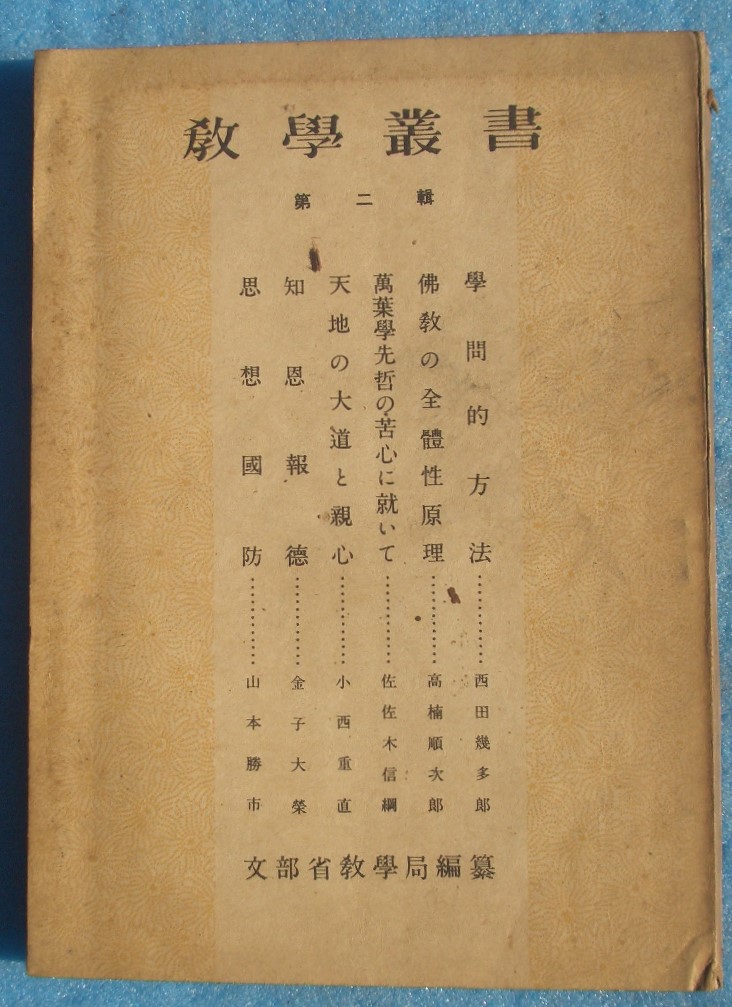 教學叢書
第二輯
學問的方法…………西田幾多郎
佛教の全體性原理…………高楠順次郎
萬葉學先哲の苦心に就いて…………佐佐木信綱
天地の大道と親心…………小西重直
知恩報德…………金子大榮
思想國防…………山本勝市
文部省教學局編纂